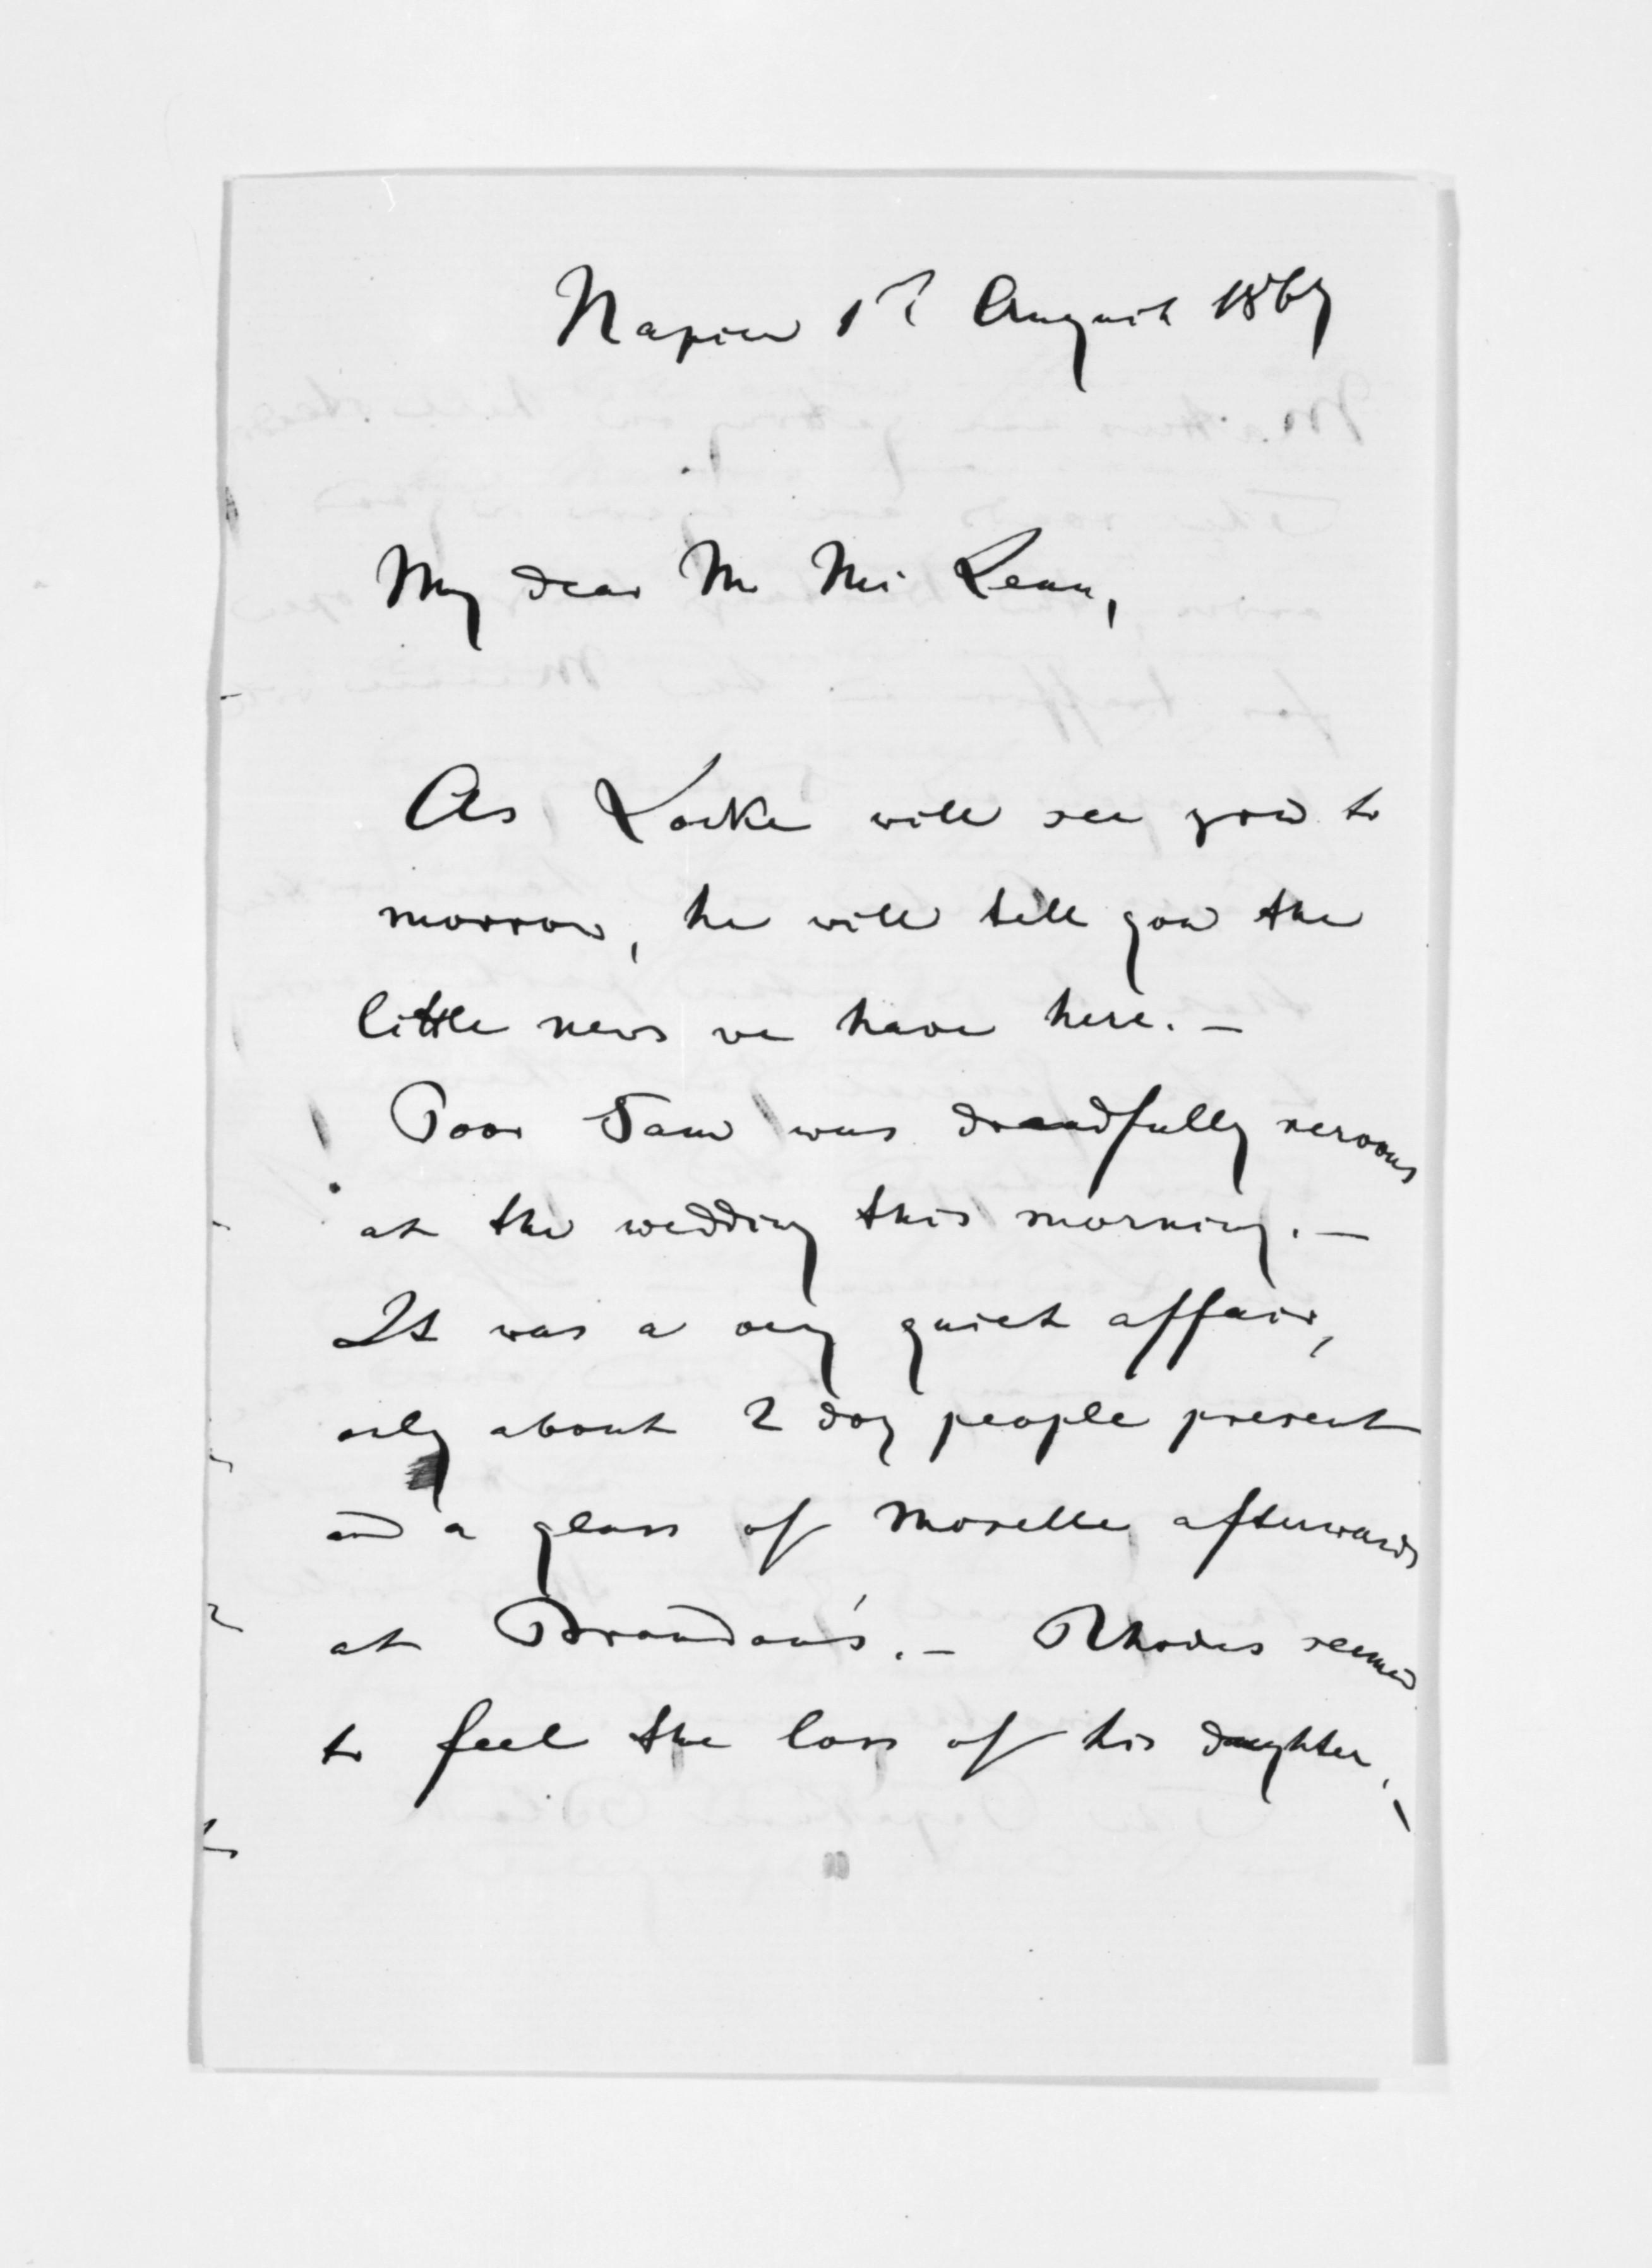 Napier 1st August 1867
My dear Mr McLean,
As Locke will see you to
morrow, he will tell you the
little news we have here. —
Poor Sam was dreadfully nervous
at the wedding this morning. —
It was a very quiet affair,
only about 2 doz people present
and a glass of Moselle afterwards
at Brandon's. — Rhodes seemed
to feel the loss of his daughter. —